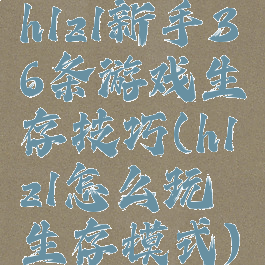 hlzl新手3
6条游戏生
存技巧(hl
zl怎么玩
生存模式)